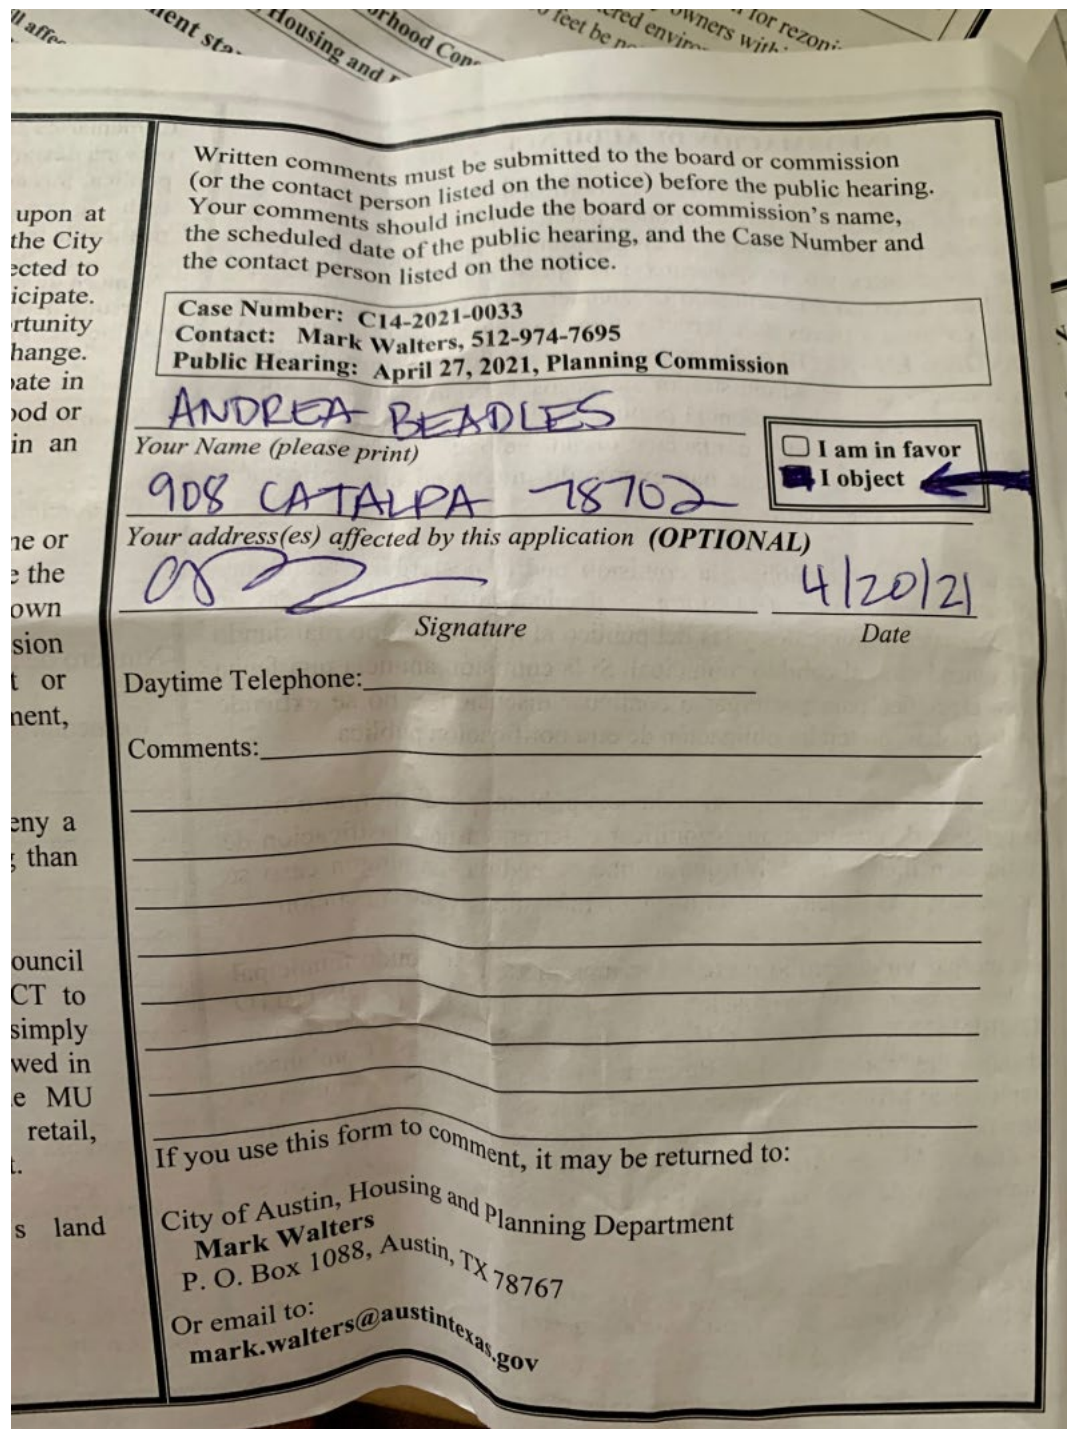 ll affec
ment sta
Housing and
rhood Con
feet be no
ered enviro
owners with
for rezoni
upon at
the City
ected to
icipate.
rtunity
hange.
pate in
ood or
in an
ne or
e the
own
sion
t or
nent,
eny a
g than
ouncil
CT to
simply
wed in
e MU
retail,
t.
s land
Written comments must be submitted to the board or commission
(or the contact person listed on the notice) before the public hearing.
Your comments should include the board or commission's name,
the scheduled date of the public hearing, and the Case Number and
the contact person listed on the notice.
Case Number: C14-2021-0033
Contact: Mark Walters, 512-974-7695
Public Hearing: April 27, 2021, Planning Commission
ANDREA BEADLES
Your Name (please print)
I am in favor
I object
908 CATALPA 78702
Your address(es) affected by this application (OPTIONAL)
4/20/21
Signature Date
Daytime Telephone:
Comments:
If you use this form to comment, it may be returned to:
City of Austin, Housing and Planning Department
Mark Walters
P. O. Box 1088, Austin, TX 78767
Or email to:
mark.walters@austintexas.gov